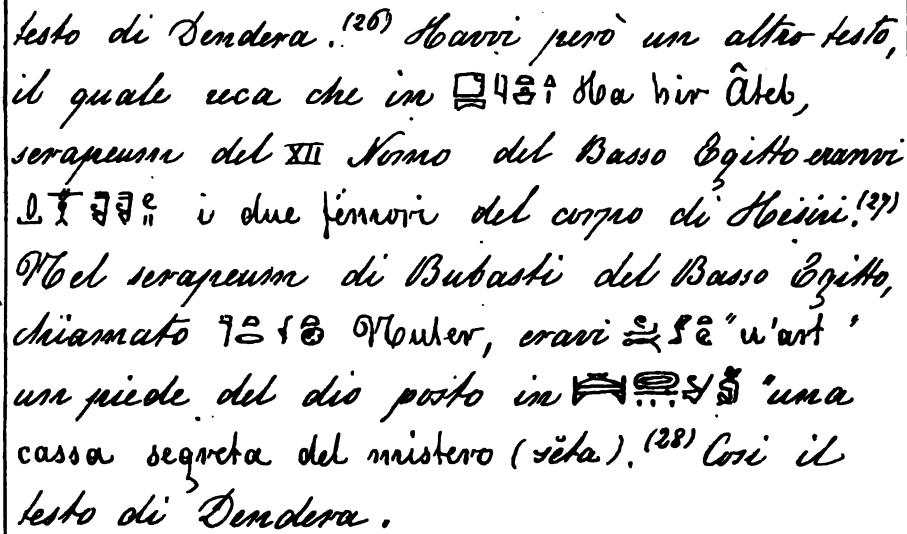 testo di Dendera.(26) Havvi però un altro testo,
il quale reca che in Ha hir Âteb,
serapeum del XII Nomo del Basso Egitto eranvi
i due femori del corpo di Hesiri.(27)
Nel serapeum di Bubasti del Basso Egitto,
chiamato Nuter, eravi "u'art"
un piede del dio posto in "una
cassa segreta del mistero (sĕta).(28) Così il
testo di Dendera.